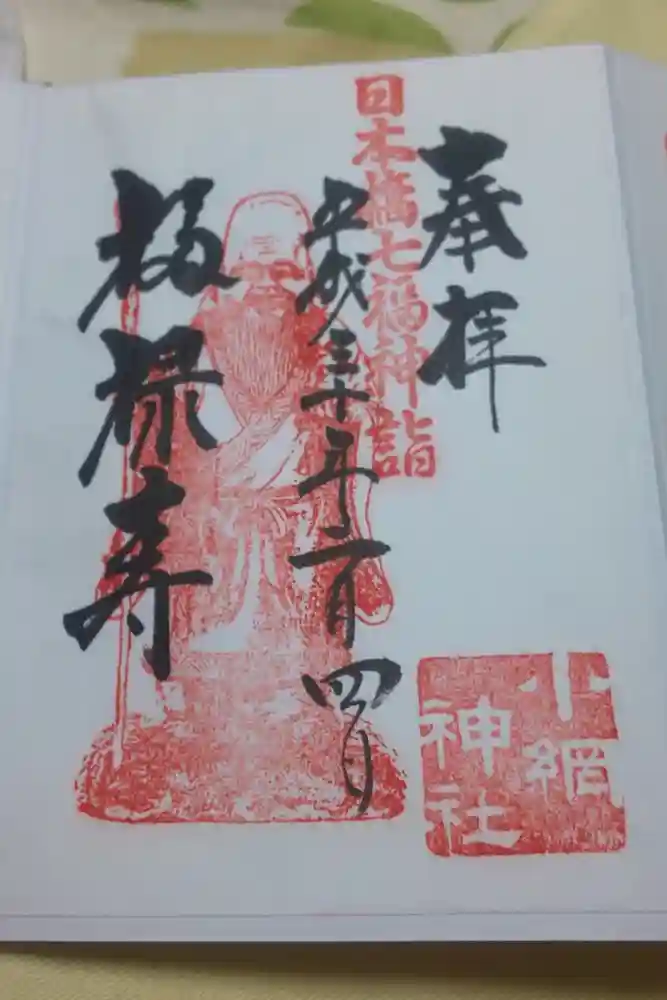 奉拝
日本橋七福神詣
平成三十年一月四日
福禄寿
小網
神社